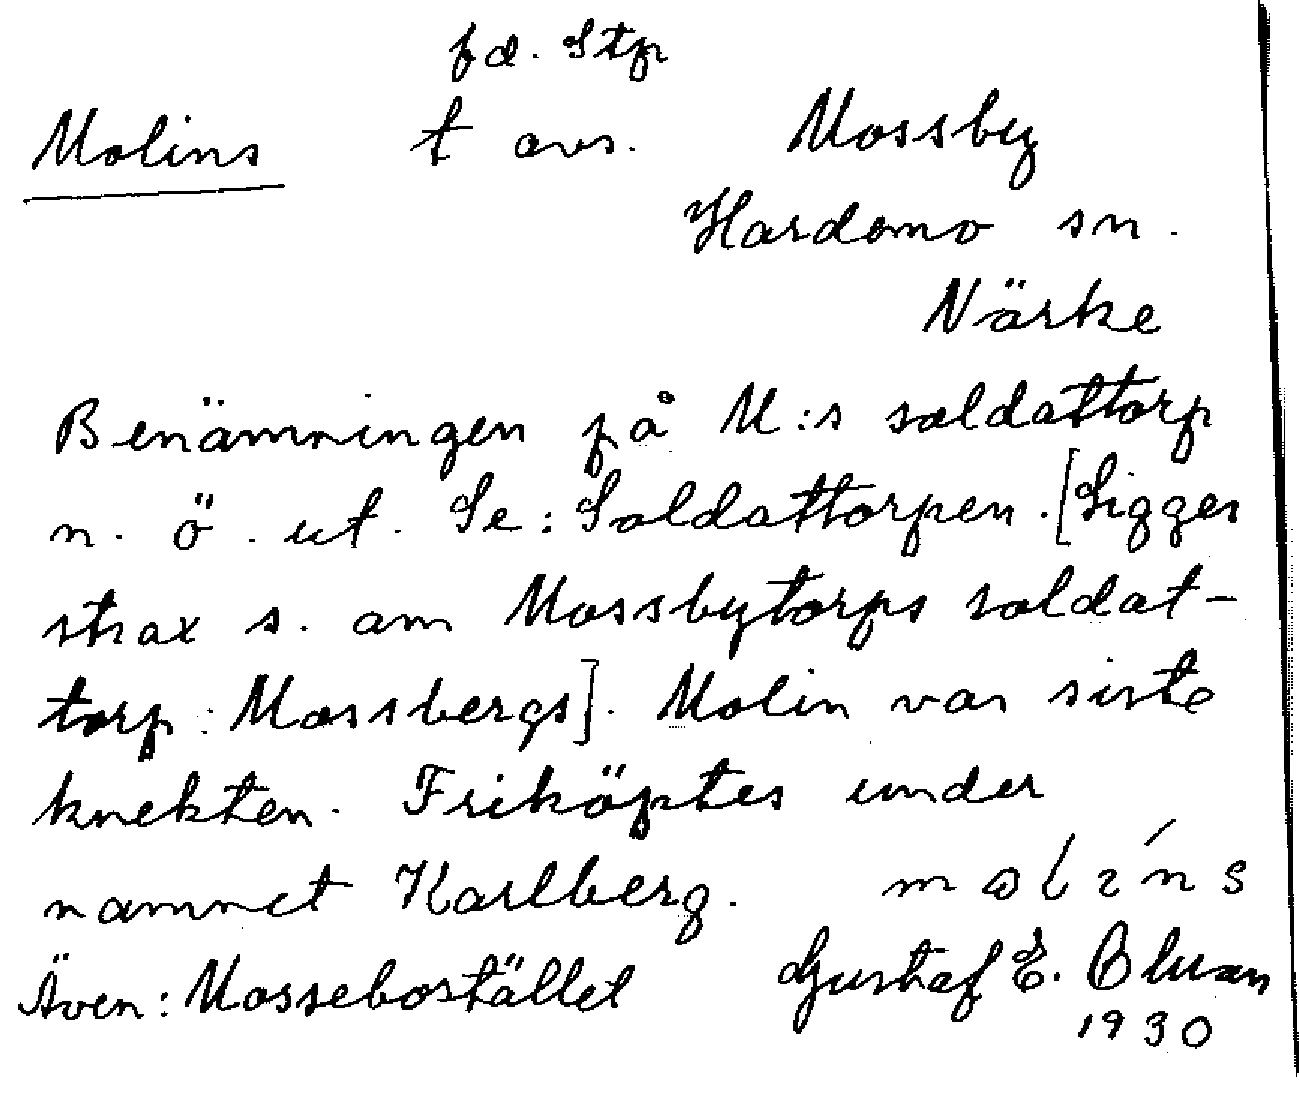 fd. Stp
Molins † avs. Mossby
Hardemo sn.
Närke
Benämningen på M:s soldattorp
n. ö. ut. Se: Soldattorpen. [Ligger
strax s. om Mossbytorps soldat-
torp: Mossbergs]. Molin var siste
knekten. Friköptes under
namnet Karlberg.
Även: Mossebostället Gustaf E.
1930